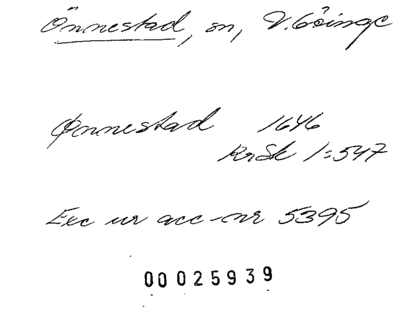 Önnestad, sn, V. Göinge
Ønnestad 1646
RnSk 1:547
Exc ur acc-nr 5395
00025939